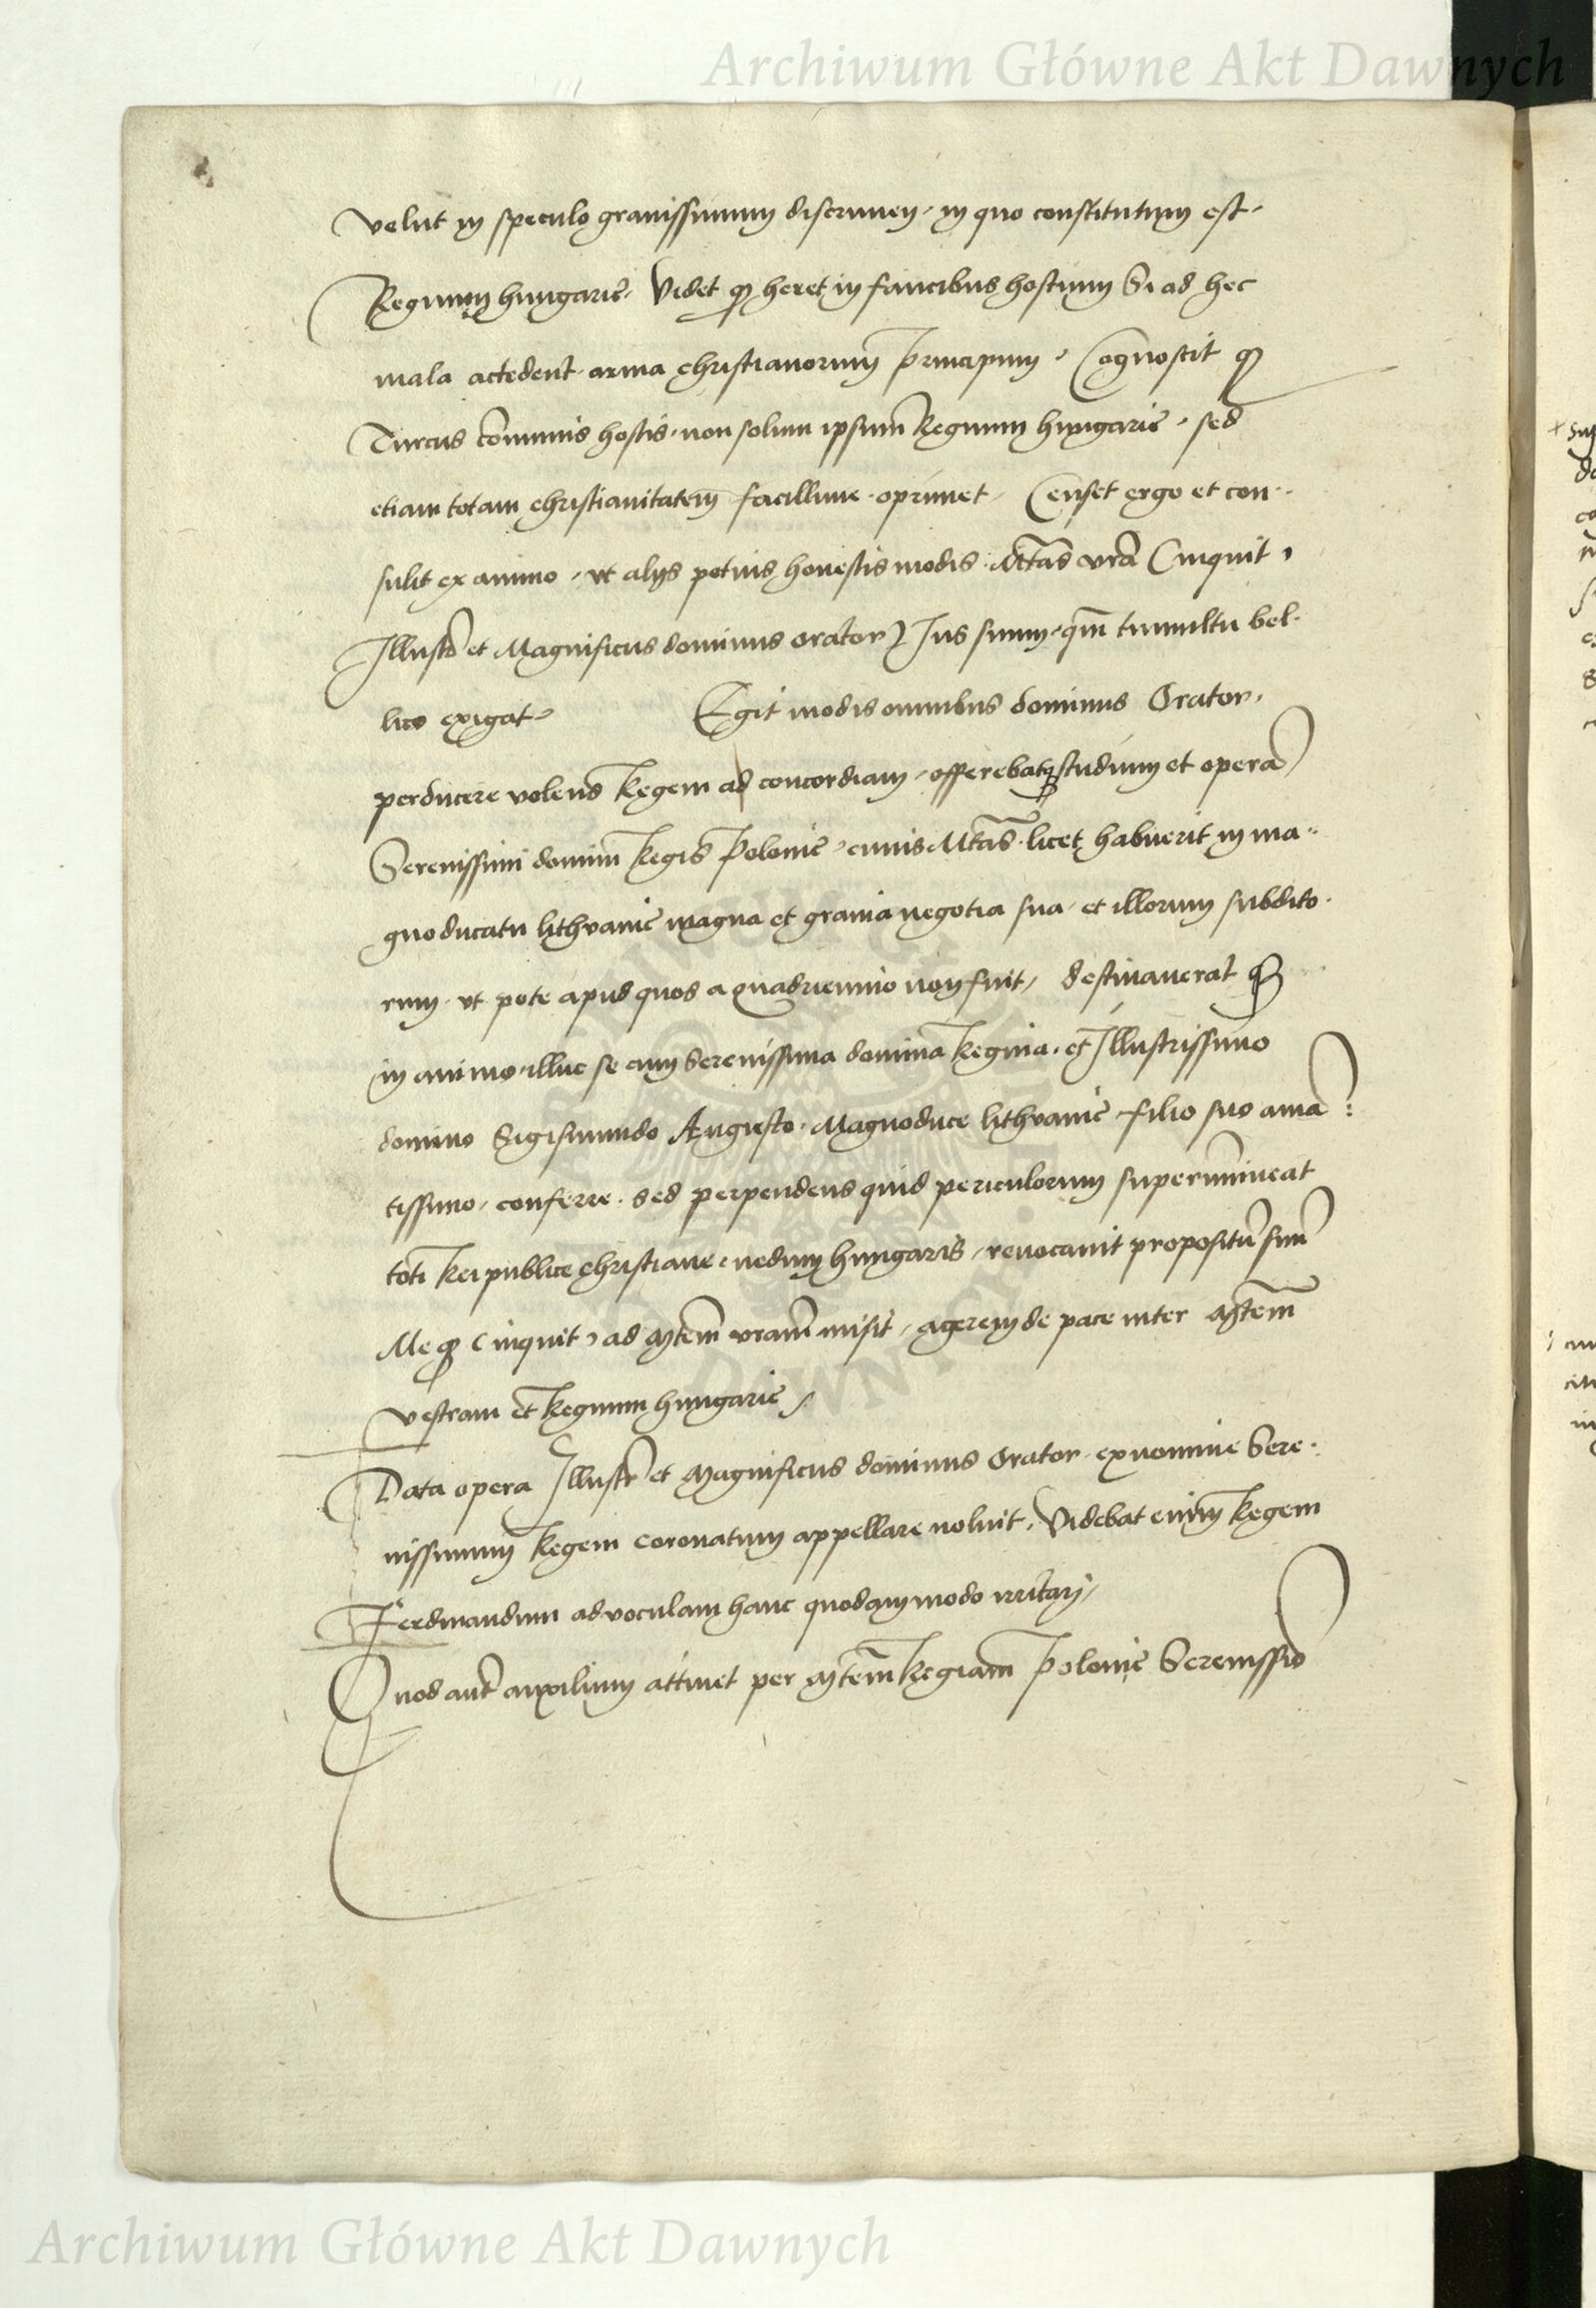 Archiwum Główne Akt Dawnych
velut in speculo gravissimum discrimen, in quo constitutum est,
Regnum hungarie, Videt q heret in faucibus hostium Si ad hec
mala accedent arma christianorum principum, Cognoscit q
Turcus cōmunis hostis, non solum ipsum Regnum hungarie, sed
etiam totam christianitatem facillime oprimet, Censet ergo et con-
sulit ex animo, ut alijs potius honestis modis Mtas vra (inquit,
Illustr et Magnificus dominus orator) Jus suum, qm tumultu bel-
lico exigat, Egit modis omnibus dominus Orator,
perducere volens Regem ad concordiam, offerebatq studium et operā
Serenissimi domini Regis Polonie, cuius Mtas licet habuerit in ma-
gno ducatu lithvanie magna et gravia negotia sua, et illorum subdito-
rum, ut pote apud quos a quadriennio non fuit, destinaverat q
in animo, illuc se cum Serenissima domina Regina, et Illustrissimo
domino Sigismundo Augusto, Magnoduce lithvanie filio suo amā:
tissimo, conferre. sed perpendens quid periculorum superimineat
toti Reipublice christiane, nedum hungaris, revocavit propositū suū
Me q (inquit) ad Mtem vram misit, agerem de pace inter Mtem
vestram et Regnum hungarie
Data opera Illustr et Magnificus dominus Orator ex nomine Sere-
nissimum Regem coronatum appellare noluit, Videbat enim Regem
Ferdinandum ad voculam hanc quodammodo irritari,
Quod aut auxilium attinet per Mtem Regiam Polonie Serenissīo
Archiwum Główne Akt Dawnych